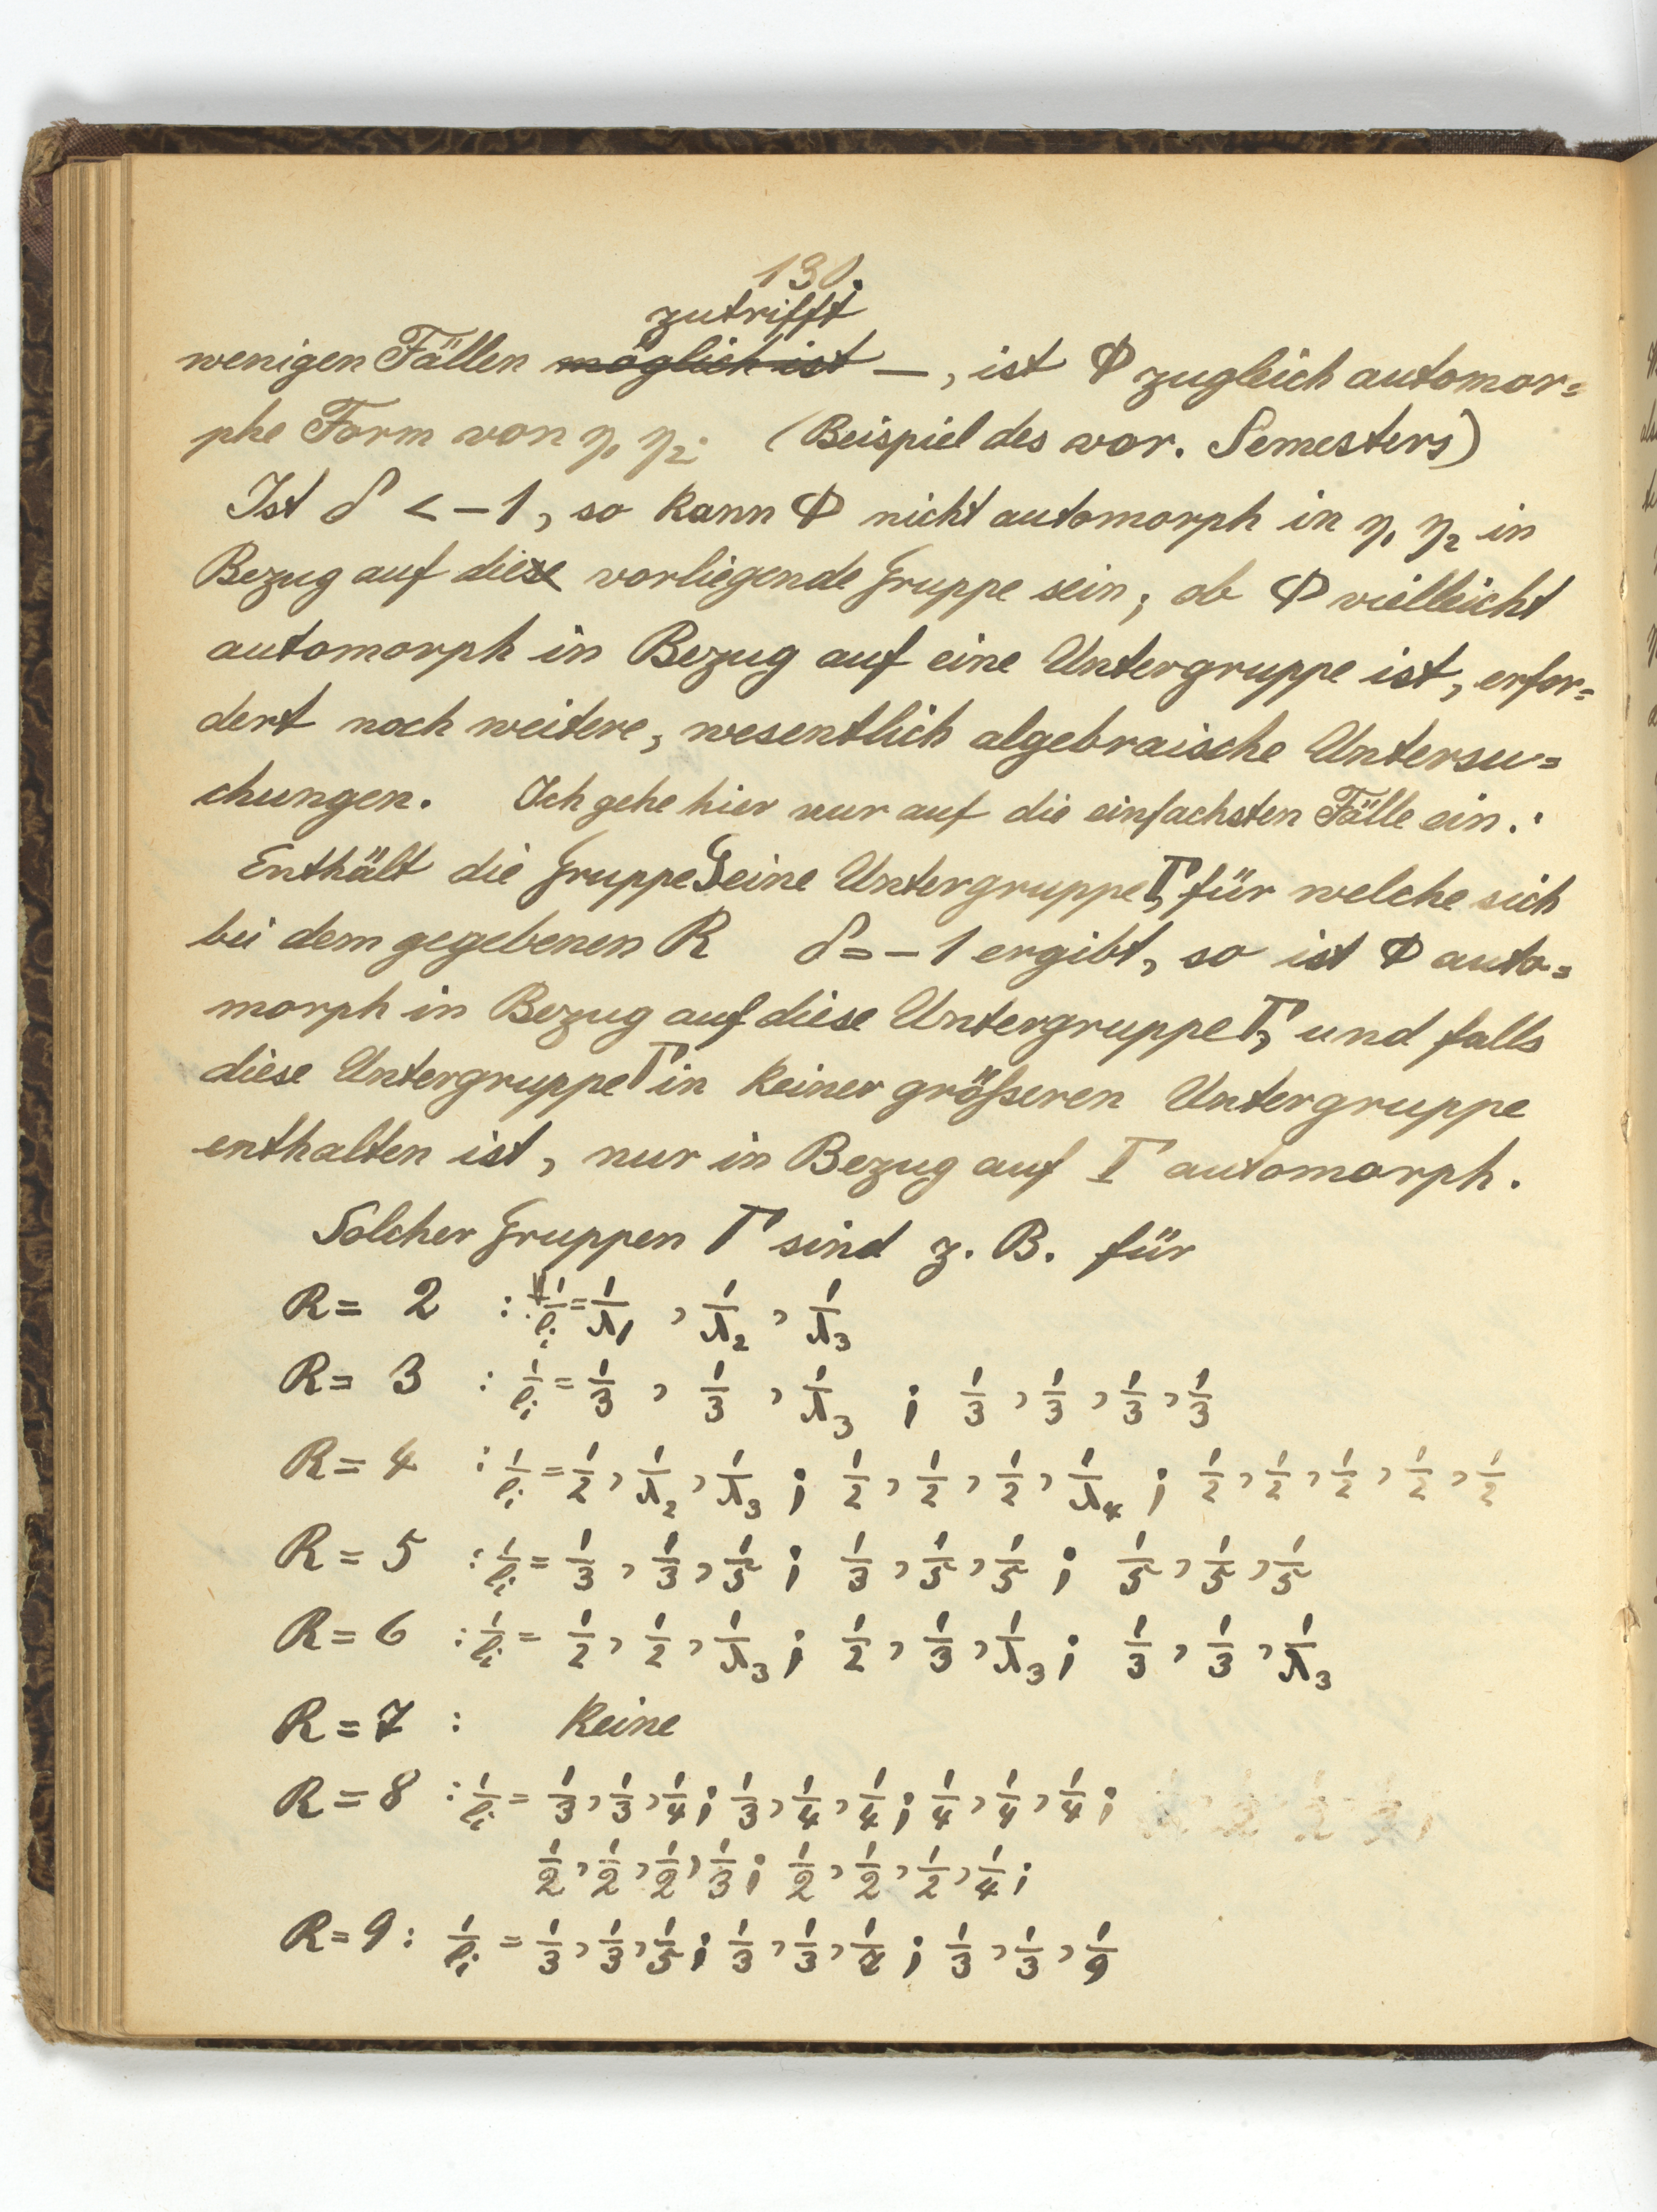 130.
zutrifft
wenigen Fällen möglich ist —, ist Φ zugleich automor=
phe Form von η₁ η₂. (Beispiel des vor. Semesters)
Ist δ < -1, so kann Φ nicht automorph in η₁ η₂ in
Bezug auf diese vorliegende Gruppe sein; ob Φ vielleicht
automorph in Bezug auf eine Untergruppe ist, erfor=
dert noch weitere, wesentlich algebraische Untersu=
chungen. Ich gehe hier nur auf die einfachsten Fälle ein.:
Enthält die Gruppe G eine Untergruppe Γ, für welche sich
bei dem gegebenen R δ = -1 ergibt, so ist Φ auto=
morph in Bezug auf diese Untergruppe Γ, und falls
diese Untergruppe Γ in keiner größeren Untergruppe
enthalten ist, nur in Bezug auf Γ automorph.
Solcher Gruppen Γ sind z. B. für
R = 2 : 1/l_i = 1/λ₁, 1/λ₂, 1/λ₃
R = 3 : 1/l_i = 1/3, 1/3, 1/λ₃ ; 1/3, 1/3, 1/3, 1/3
R = 4 : 1/l_i = 1/2, 1/λ₂, 1/λ₃ ; 1/2, 1/2, 1/2, 1/λ₄ ; 1/2, 1/2, 1/2, 1/2, 1/2
R = 5 : 1/l_i = 1/3, 1/3, 1/5 ; 1/3, 1/5, 1/5 ; 1/5, 1/5, 1/5
R = 6 : 1/l_i = 1/2, 1/2, 1/λ₃ ; 1/2, 1/3, 1/λ₃ ; 1/3, 1/3, 1/λ₃
R = 7 : keine
R = 8 : 1/l_i = 1/3, 1/3, 1/4 ; 1/3, 1/4, 1/4 ; 1/4, 1/4, 1/4 ;
1/2, 1/2, 1/2, 1/3 ; 1/2, 1/2, 1/2, 1/4 ;
R = 9 : 1/l_i = 1/3, 1/3, 1/5 ; 1/3, 1/3, 1/7 ; 1/3, 1/3, 1/9